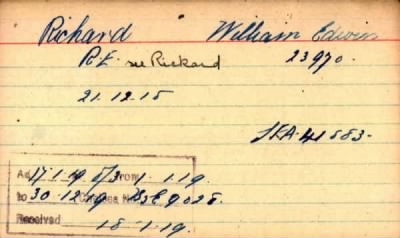 Richard William Edwin
R.E. see Rickard 23970.
21.12.15
SEA. 41583.
Ad 17.1.19 from 1.1.19.
to 30.12.19
Received 18.1.19.